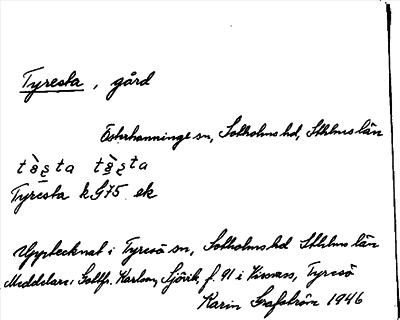 Tyresta, gård
Österhanninge sn, Sotholms hd, Sthlms län
Tyresta kG75 ek
Upptecknat i Tyresö sn, Sotholms hd Sthlms län
Meddelare: Gottfr. Karlson, Sjövik, f. 91 i Tyresö
Karin 1946